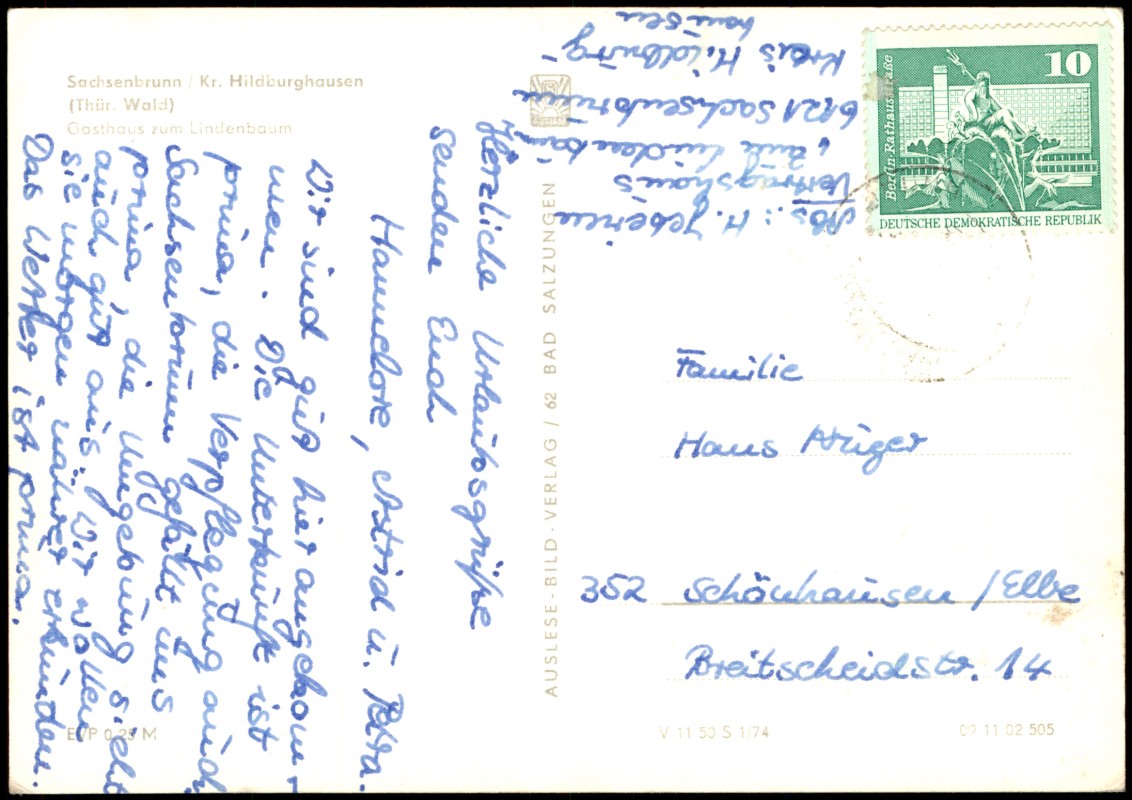 Sachsenbrunn / Kr. Hildburghausen
(Thür. Wald)
Gasthaus zum Lindenbaum
Herzliche Urlaubsgrüße
senden Euch
Hannelore, Astrid u. Petra.
Wir sind gut hier angekom-
men. Die Unterkunft ist
prima, die Verpflegung auch
Sachsenbrunn gefällt uns
prima, die Umgebung sieht
auch gut aus. Wir wollen
sie morgen näher erkunden.
Das Wetter ist prima.
AUSLESE-BILD-VERLAG / 62 BAD SALZUNGEN
Abs.: H.
Vertragshaus
"Zum Lindenbaum"
6121 Sachsenbrunn
Kreis Hildburg-
hausen
10
Berlin-Rathausstraße
DEUTSCHE DEMOKRATISCHE REPUBLIK
Familie
Hans Krüger
352 Schönhausen / Elbe
Breitscheidstr. 14
EVP 0,25 M
V 11 50 S 1/74
09 11 02 505